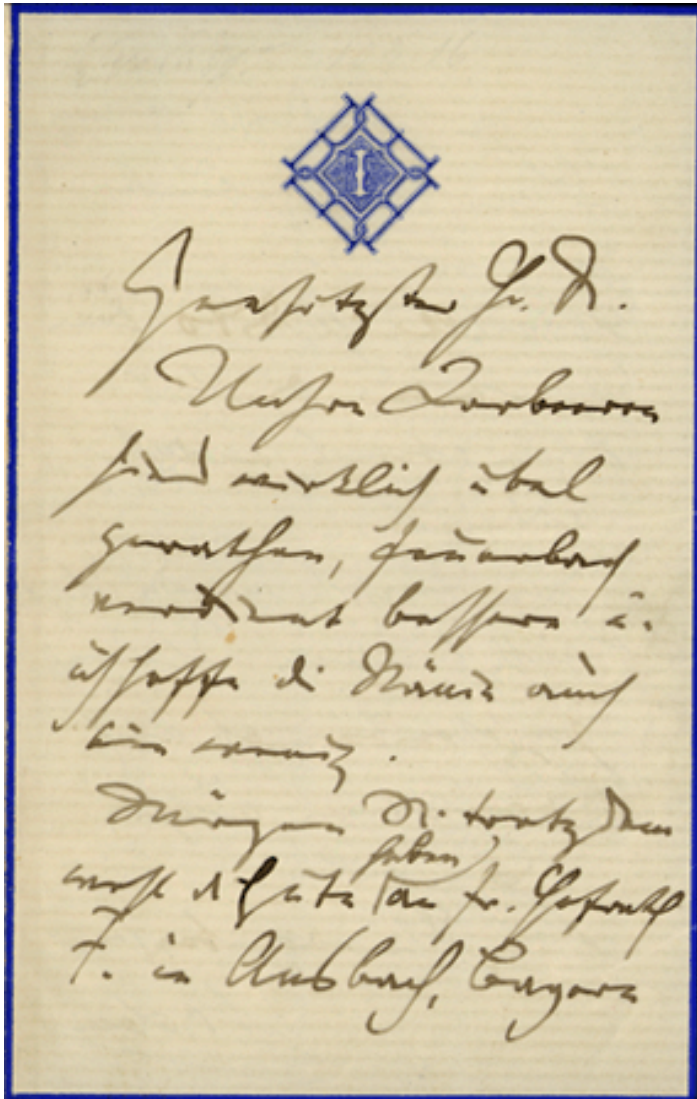 I
Geschätzter Hr.
Unsre Lorbeeren
sind wirklich übel
gerathen, Feuerbach
verdient bessere u.
ich hoffe die Nänie auch
ein wenig.
Mögen S. trotzdem
wohl d Güte haben an Fr. Hofrath
F. in Ansbach, Bayern